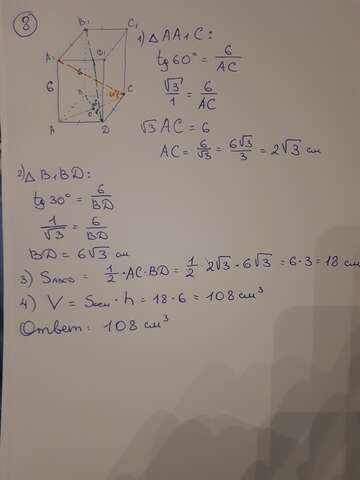 8
B₁ C₁
A₁ D₁
6 60° C
30°
A D
1) △ AA₁C:
tg 60° = 6/AC
√3/1 = 6/AC
√3 AC = 6
AC = 6/√3 = 6√3/3 = 2√3 см
2) △ B₁BD:
tg 30° = 6/BD
1/√3 = 6/BD
BD = 6√3 см
3) SABCD = 1/2 · AC · BD = 1/2 · 2√3 · 6√3 = 6 · 3 = 18 см
4) V = Sосн · h = 18 · 6 = 108 см³
Ответ: 108 см³